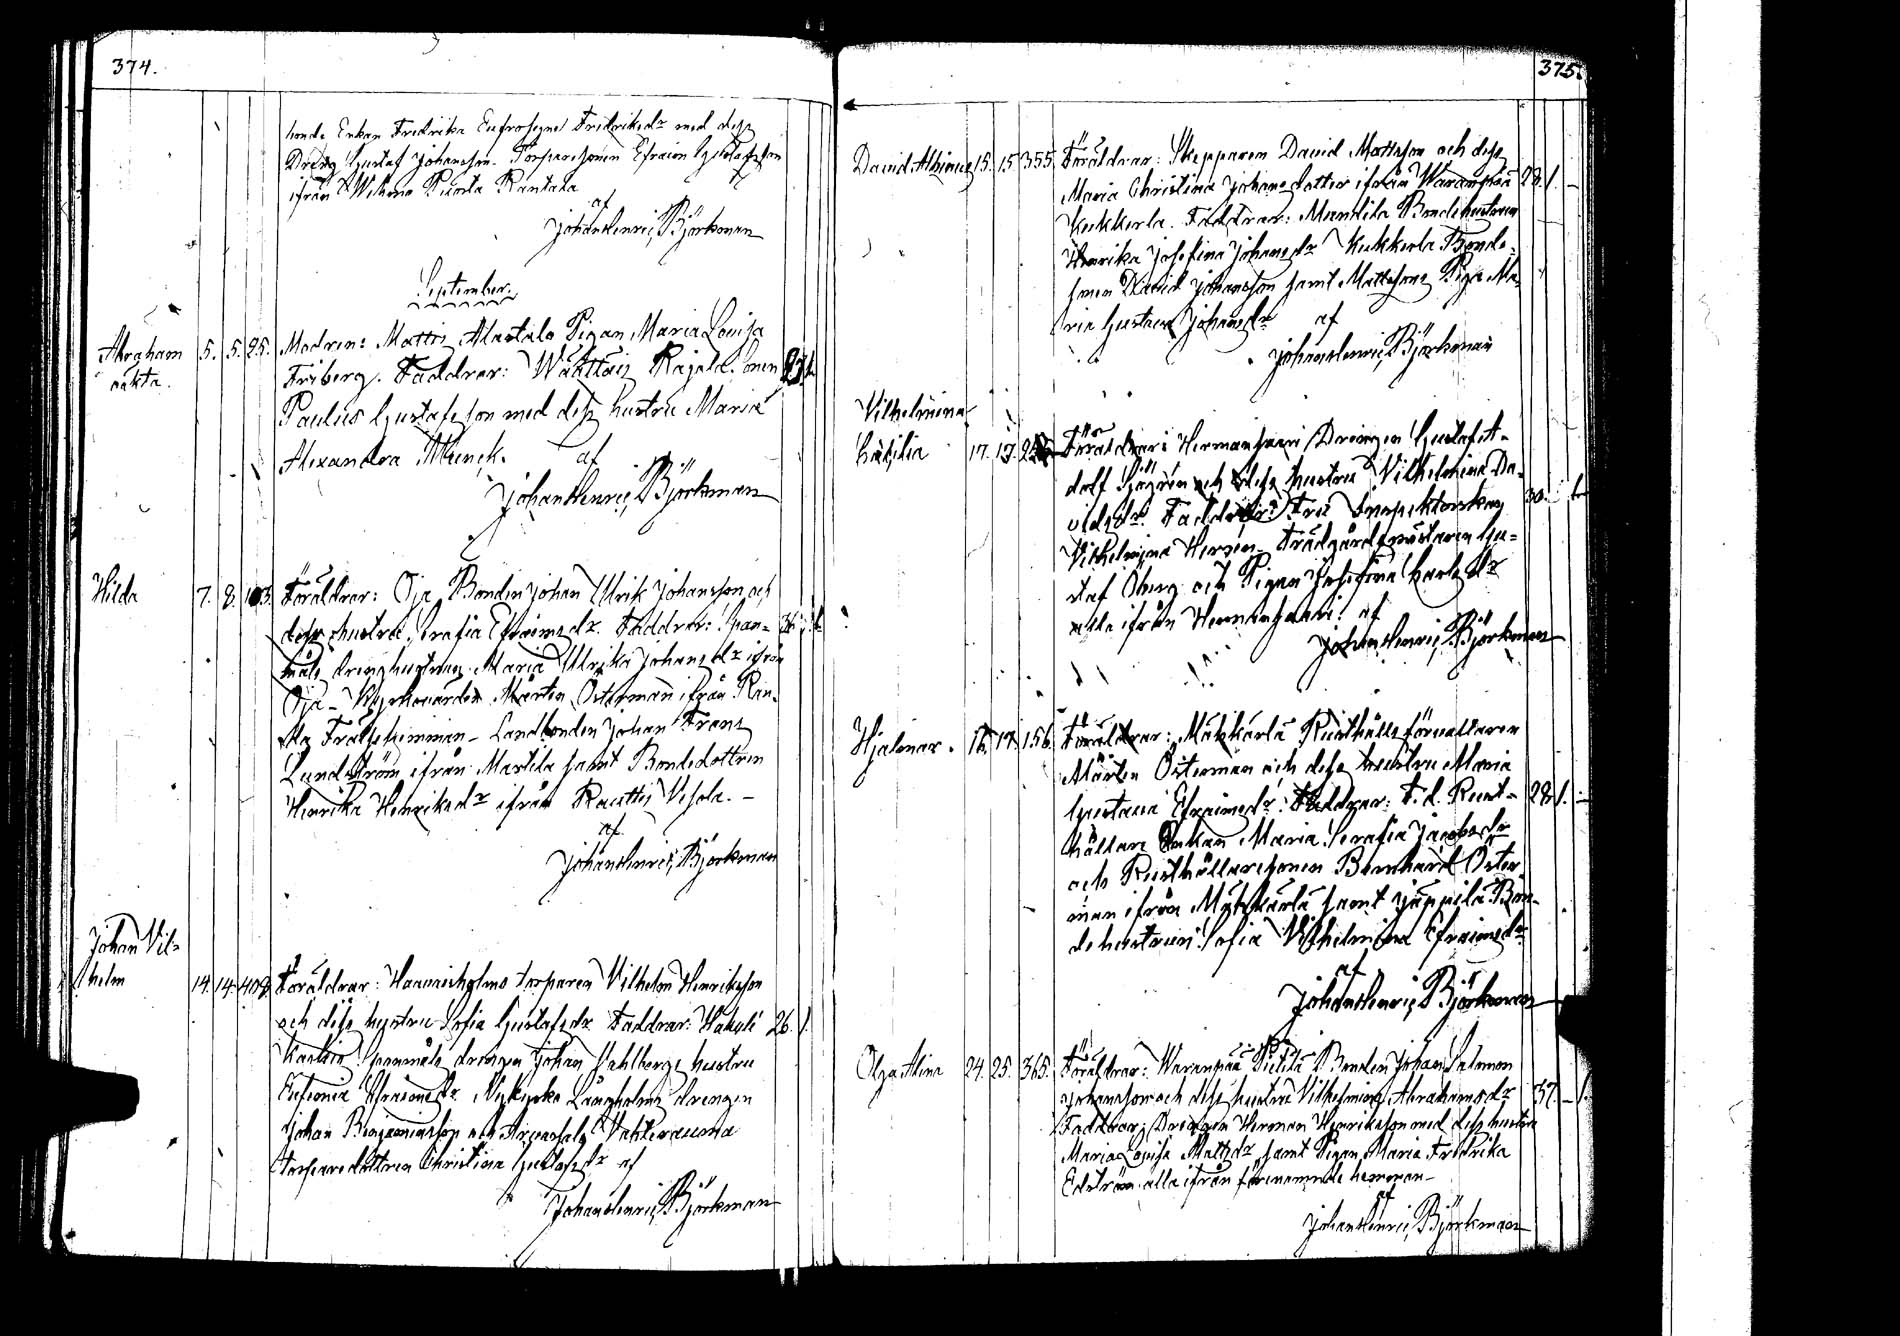 374.
honde Enkan Fredrika Eufrosyne Fredriksdr med dess
Dreng Gustaf Johansson. Torparesonen Efraim Gustafsson
ifrån Wihmo Puosta Rantala
af
Johan Henric Björkman
September.
Abraham 5. 5. 25. Modren: Mattis Alastalo Pigan Maria Lovisa
oäkta. Friberg. Faddrar: Wähttäis Rajala Sonen
Paulus Gustafsson med dess hustru Maria
Alexandra Munck. af
Johan Henric Björkman
Hilda 7. 8. 103. Föräldrar: Oja Bonden Johan Ulrik Johansson och
dess hustru Serafia Efraimsdr. Faddrar: Span- 36
måls drenghustrun Maria Ulrika Johansdr ifrån
Oja - Kyrkovärden Mårten Österman ifrån Ran-
Frälsehemman - Landbonden Johan Frans
Lundström ifrån Martila samt Bondedottren
Henrika Henriksdr ifrån Rauttis Vesola. -
af
Johan Henric Björkman
Johan Vil-
helm 14. 14. 408. Föräldrar: torparen Vilhelm Henriksson
och dess hustru Sofia Gustafsdr Faddrar: 26. 1.
Spanmåls drengen Johan Vahlbergs hustru
Eufemia Efraimsdr. Nykyrko Långholms drengen
Johan Benjaminsson och Vahterauma
torparedottren Christina Gustafsdr af
Johan Henric Björkman
375.
David Albinus 15. 15. 355. Föräldrar: Skepparen David Mattsson och dess
Maria Christina Johansdotter ifrån Waranpää 28. 1. -
Kukkerla. Faddrar: Mandila Bondehustrun
Henrika Josefina Johansdr Kukkerla Bonde-
sonen David Johansson samt Mattssons Piga Ma-
ria Gustava Johansdr af
Johan Henric Björkman
Vilhelmina
Cecilia 17. 17. Föräldrar: Hermansaari Drengen Gustaf A-
dolf Sjögrén och dess hustru Vilhelmina Da-
vidsdr. Faddrar: Fru Inspektorskan 30.
Vilhelmina Hersén - Trädgårdsmästaren Gu-
staf Öberg och Pigan Josefina Carlsdr
alla ifrån Hermansaari. af
Johan Henric Björkman
Hjalmar. 16. 17. 156. Föräldrar: Mähkärlä Rusthålls förvaltaren
Mårten Österman och dess hustru Maria
Gustava Efraimsdr. Faddrar: F.d. Rust- 28. 1. -
hållare Enkan Maria Serafia Jacobsdr
och Rusthållaresonen Bernhard Öster-
man ifrån Mähkärlä samt Jäppilä Bon-
dehustrun Sofia Vilhelmina Efraimsdr
af
Johan Henric Björkman
Olga Alina 24. 25. 365. Föräldrar: Waranpää Pietilä Bonden Johan Salomon
Johansson och dess hustru Vilhelmina Abrahamsdr 37. - 1.
Faddrar: Drengen Herman Henriksson med dess hustru
Maria Lovisa Mattsdr samt Pigan Maria Fredrika
Edström alla ifrån förenämnde hemman -
af
Johan Henric Björkman